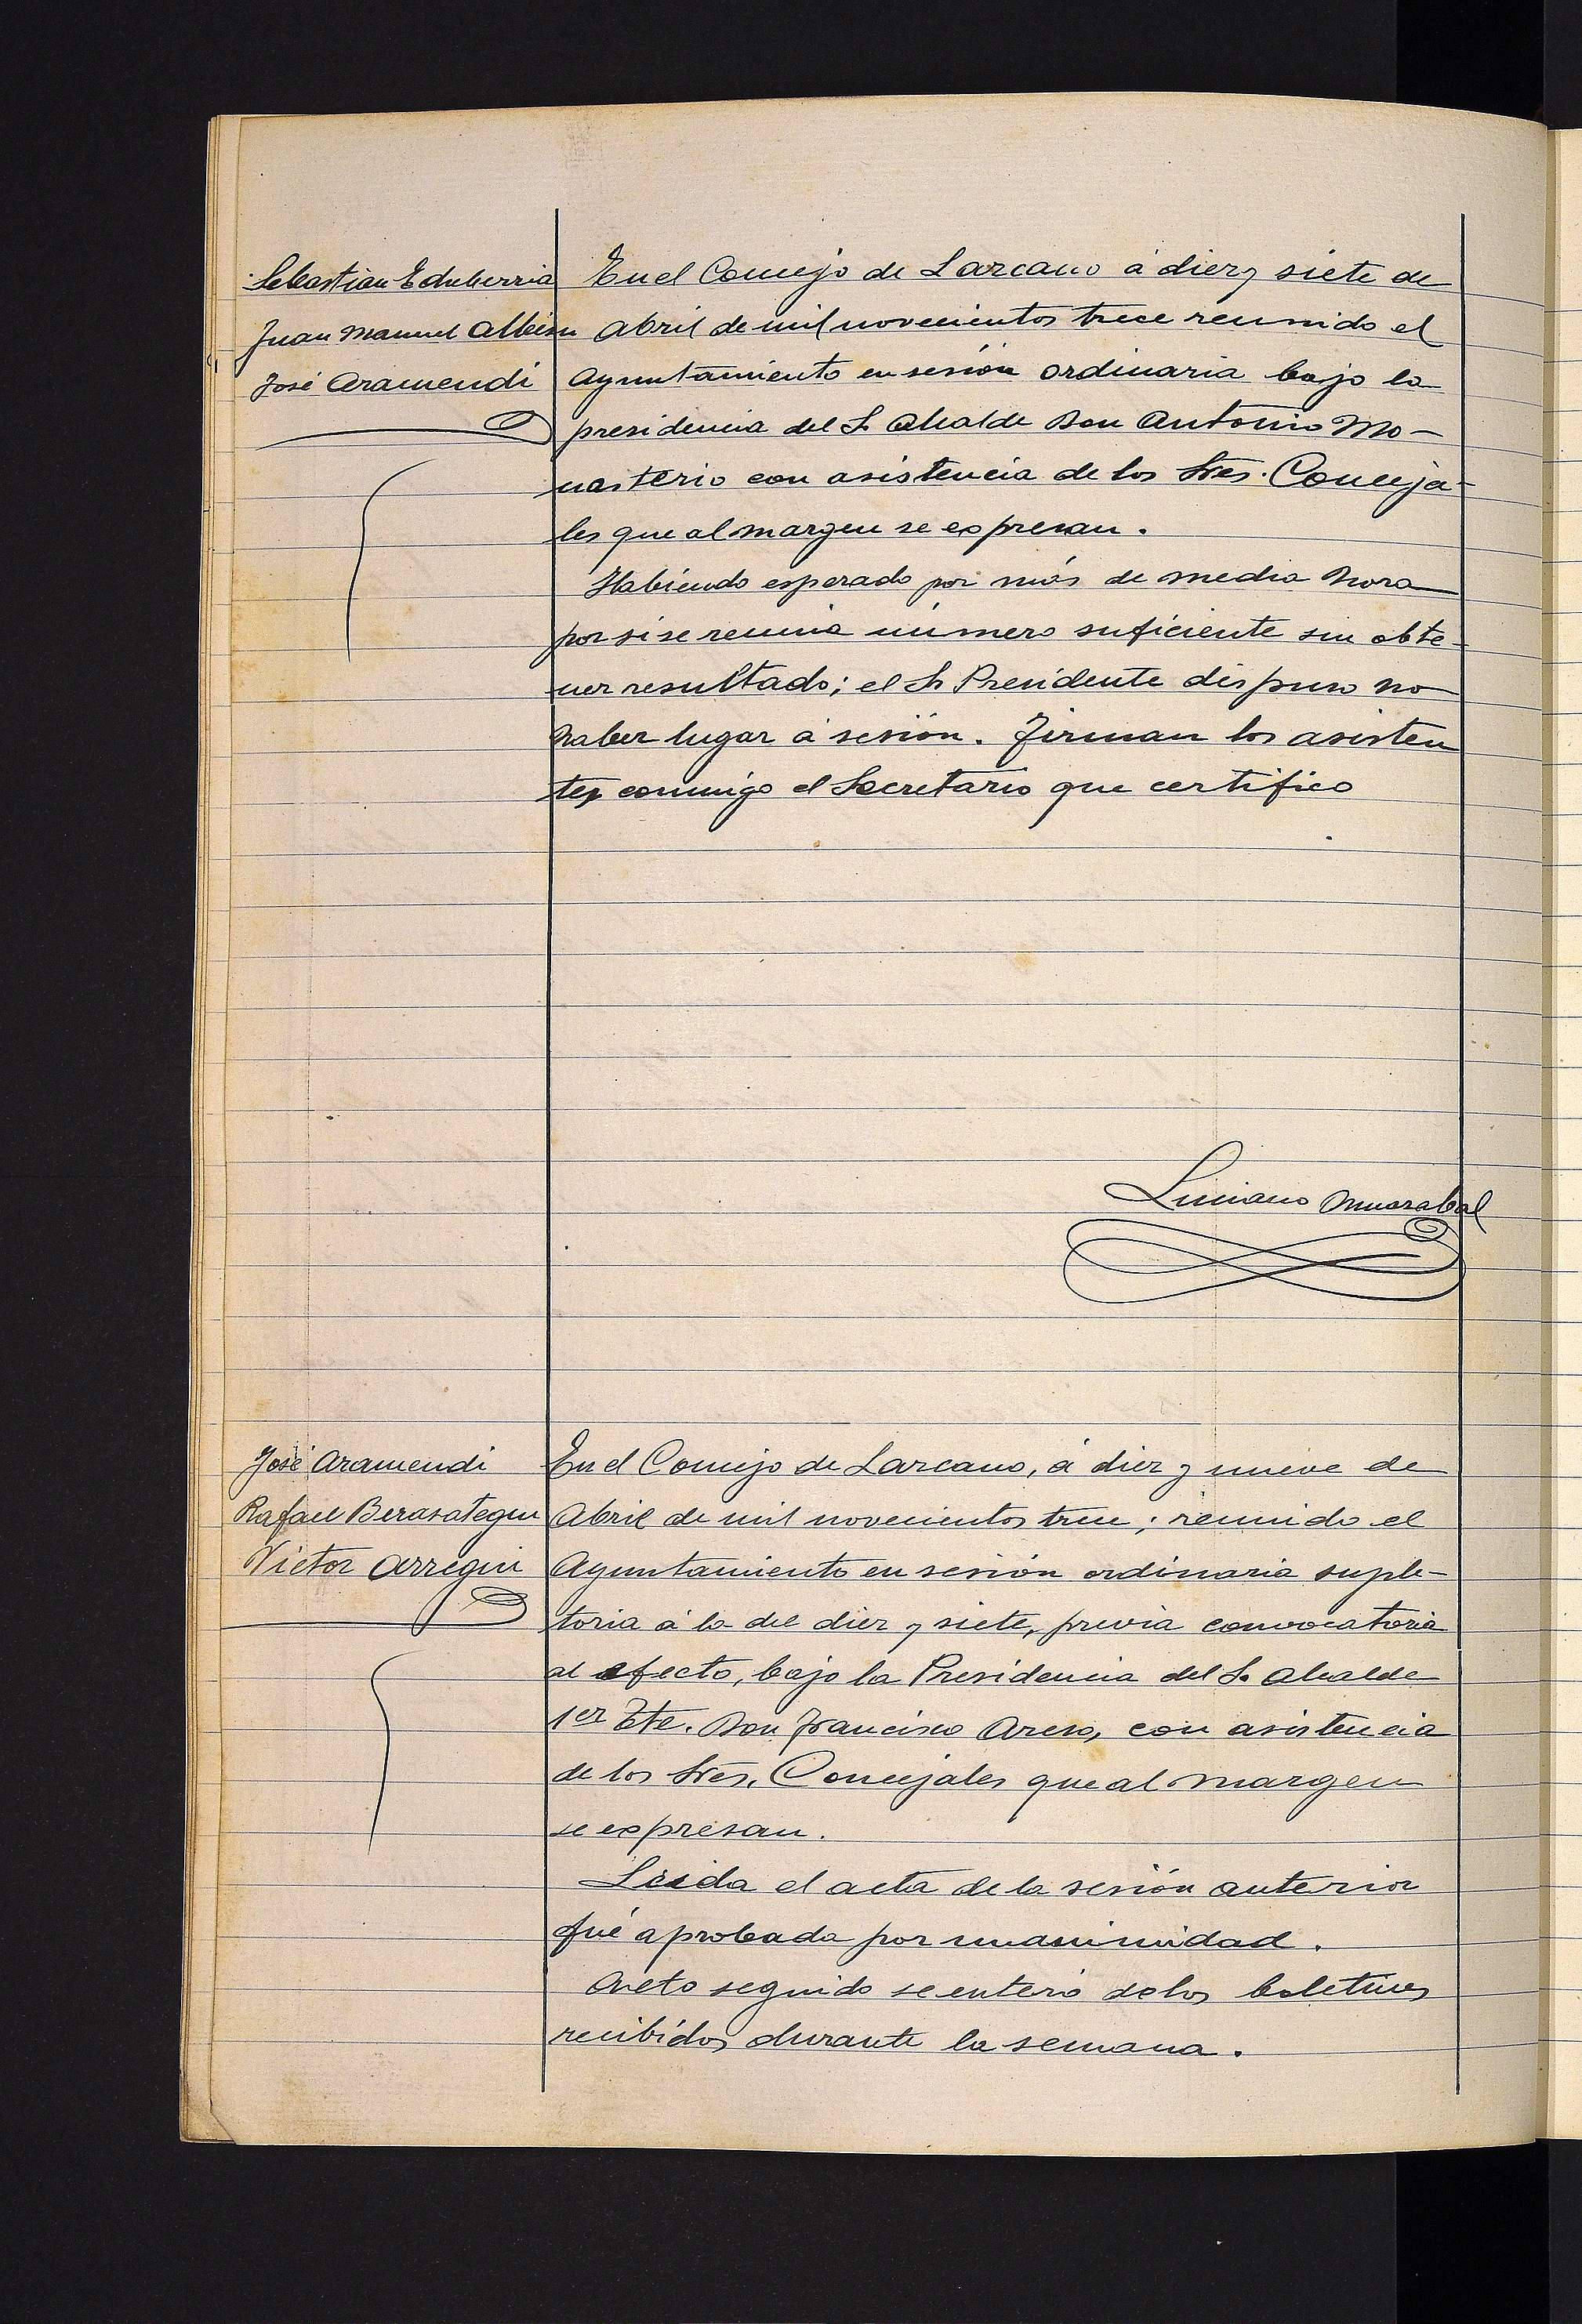 Sebastian Echeberria
Juan Manuel Albisu
José Aramendi
En el Concejo de Lazcano á diez y siete de
Abril de mil novecientos trece reunido el
Ayuntamiento en sesión ordinaria bajo la
presidencia del Sr Alcalde Don Antonio Mo-
nasterio con asistencia de los Sres. Conceja-
les que al margen se expresan.
Habiendo esperado por más de media hora
por si se reunia número suficiente sin obte-
ner resultado; el Sr Presidente dispuso no
haber lugar á sesión. Firman los asisten
tes conmigo el Secretario que certifico
Luciano Muarabal
José Aramendi
Rafael Berasategui
Victor Arregui
En el Concejo de Lazcano, á diez y nueve de
Abril de mil novecientos trece; reunido el
Ayuntamiento en sesión ordinaria suple-
toria á la del diez y siete, previa convocatoria
al efecto, bajo la Presidencia del Sr Alcalde
1er Tte. Don Francisco Areso, con asistencia
de los Sres. Concejales que al margen
se expresan.
Leida el acta de la sesión anterior
fué aprobada por unanimidad.
Acto seguido se enteró de los boletines
recibidos durante la semana.